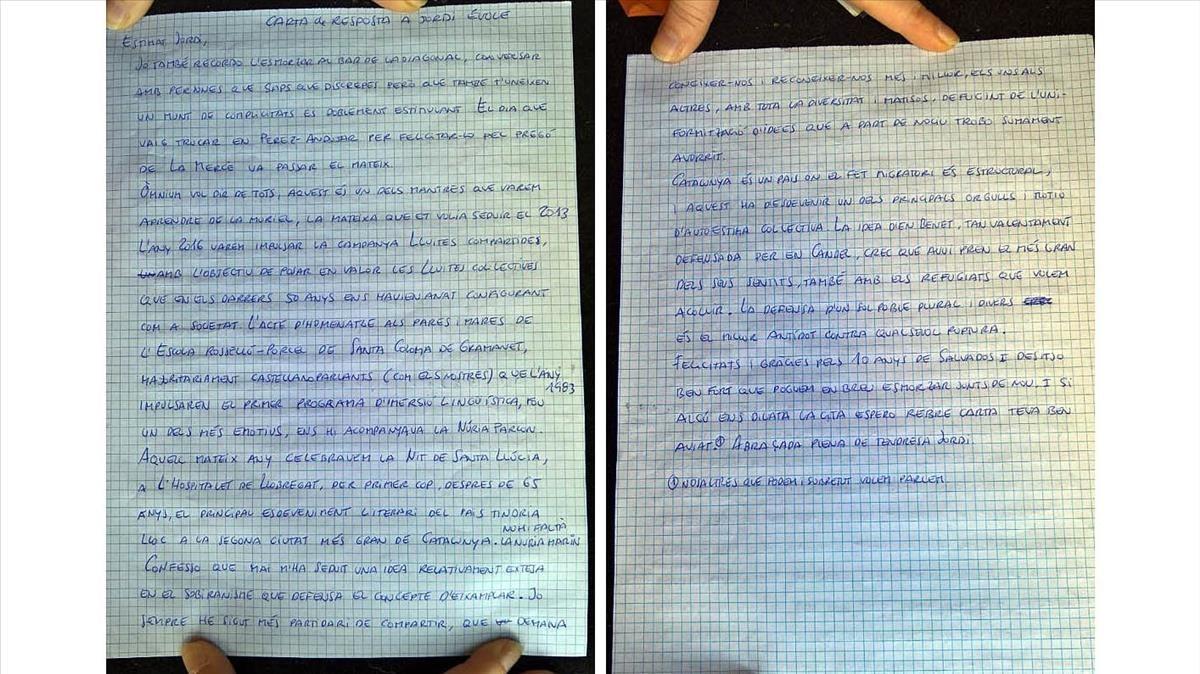 CARTA de RESPOSTA A JORDI ÉVOLE
ESTIMAT JORDI,
JO TAMBÉ RECORDO L'ESMORZAR AL BAR DE LA DIAGONAL, CONVERSAR
AMB PERSONES QUE SAPS QUE DISCREPES PERÒ QUE TAMBÉ T'UNEIXEN
UN MUNT DE COMPLICITATS ES DOBLEMENT ESTIMULANT. EL DIA QUE
VAIG TRUCAR EN PEREZ-ANDUJAR PER FELICITAR-LO PEL PREGÓ
DE LA MERCÈ VA PASSAR EL MATEIX.
ÒMNIUM VOL DIR DE TOTS, AQUEST ÉS UN DELS MANTRES QUE VAREM
APRENDRE DE LA MURIEL, LA MATEIXA QUE ET VOLIA SEGUIR EL 2013
L'ANY 2016 VAREM IMPULSAR LA CAMPANYA LLUITES COMPARTIDES,
AMB L'OBJECTIU DE POSAR EN VALOR LES LLUITES COL·LECTIVES
QUE EN ELS DARRERS 50 ANYS ENS HAVIEN ANAT CONFIGURANT
COM A SOCIETAT. L'ACTE D'HOMENATGE ALS PARES I MARES DE
L'ESCOLA ROSSELLÓ-PORCEL DE SANTA COLOMA DE GRAMANET,
MAJORITARIAMENT CASTELLANOPARLANTS (COM ELS NOSTRES) QUE L'ANY
1983
IMPULSAREN EL PRIMER PROGRAMA D'IMERSIÓ LINGÜÍSTICA, FOU
UN DELS MÉS EMOTIUS, ENS HI ACOMPANYAVA LA NÚRIA PARLON.
AQUELL MATEIX ANY CELEBRAVEM LA NIT DE SANTA LLÚCIA,
A L'HOSPITALET DE LLOBREGAT, PER PRIMER COP, DESPRES DE 65
ANYS, EL PRINCIPAL ESDEVENIMENT LITERARI DEL PAIS TINDRIA
NO HI FALTÀ
LLOC A LA SEGONA CIUTAT MÉS GRAN DE CATALUNYA. LA NURIA MARÍN
CONFESSO QUE MAI M'HA SEDUIT UNA IDEA RELATIVAMENT EXTESA
EN EL SOBIRANISME QUE DEFENSA EL CONCEPTE D'EIXAMPLAR. JO
SEMPRE HE SIGUT MÉS PARTIDARI DE COMPARTIR, QUE DEMANA
CONEIXER-NOS I RECONEIXER-NOS MÉS I MILLOR, ELS UNS ALS
ALTRES, AMB TOTA LA DIVERSITAT I MATISOS, DEFUGINT DE L'UNI-
FORMITZACIÓ D'IDEES QUE A PART DE NOCIU TROBO SUMAMENT
AVORRIT.
CATALUNYA ÉS UN PAIS ON EL FET MIGRATORI ÉS ESTRUCTURAL,
I AQUEST HA ESDEVENIR UN DELS PRINCIPALS ORGULLS I MOTIO
D'AUTOESTIMA COL·LECTIVA. LA IDEA D'EN BENET, TAN VALENTAMENT
DEFENSADA PER EN CANDEL, CREC QUE AVUI PREN EL MÉS GRAN
DELS SEUS SENTITS, TAMBÉ AMB ELS REFUGIATS QUE VOLEM
ACOLLIR. LA DEFENSA D'UN SOL POBLE PLURAL I DIVERS
ÉS EL MILLOR ANTÍDOT CONTRA QUALSEVOL RUPTURA.
FELICITATS I GRÀCIES PELS 10 ANYS DE SALVADOS I DESITJO
BEN FORT QUE POGUEM EN BREU ESMORZAR JUNTS DE NOU. I SI
ALGÚ ENS DILATA LA CITA ESPERO REBRE CARTA TEVA BEN
AVIAT.① ABRAÇADA PLENA DE TENDRESA JORDI
① NOSALTRES QUE PODEM I SOBRETOT VOLEM PARLEM